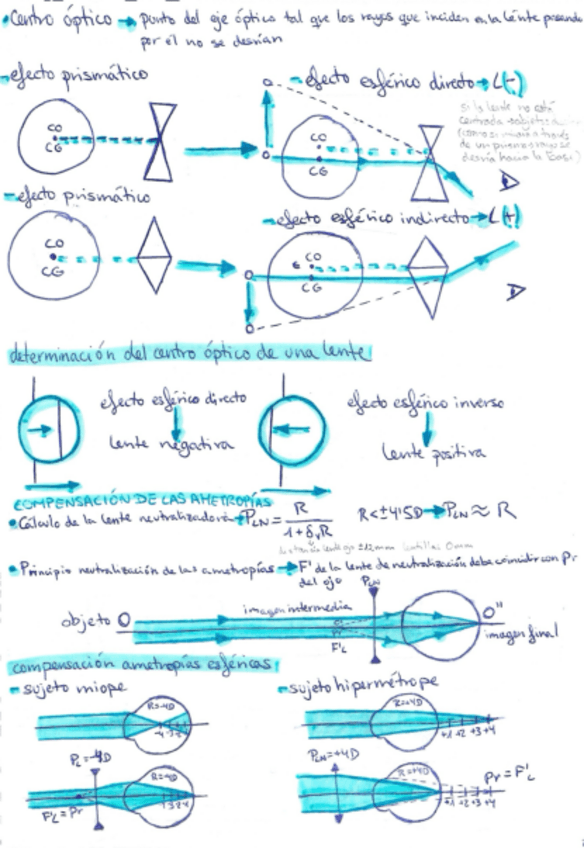 •Centro óptico → punto del eje óptico tal que los rayos que inciden en la lente pasando
por él no se desvían
-efecto prismático
-efecto esférico directo → L(-)
CO
CG
CO
CG
si la lente no está
centrada
-efecto prismático
-efecto esférico indirecto → L(+)
CO
CG
CO
CG
determinación del centro óptico de una lente
efecto esférico directo
lente negativa
efecto esférico inverso
lente positiva
COMPENSACIÓN DE LAS AMETROPÍAS
•Cálculo de la lente neutralizadora → PLN = R / 1+δvR
R<±4'5D → PLN ≈ R
±12mm lentillas 0mm
•Principio neutralización de las ametropías → F' de la lente de neutralización debe coincidir con Pr
del ojo
PLN
objeto O
imagen intermedia
Pr
F'L
O''
imagen final
compensación ametropías esféricas
-sujeto miope
-sujeto hipermétrope
R=-4D
R=+4D
+1 +2 +3 +4
PL=-4D
R=-4D
F'L=Pr
PLN=+4D
R=+4D
Pr=F'L
+1 +2 +3 +4